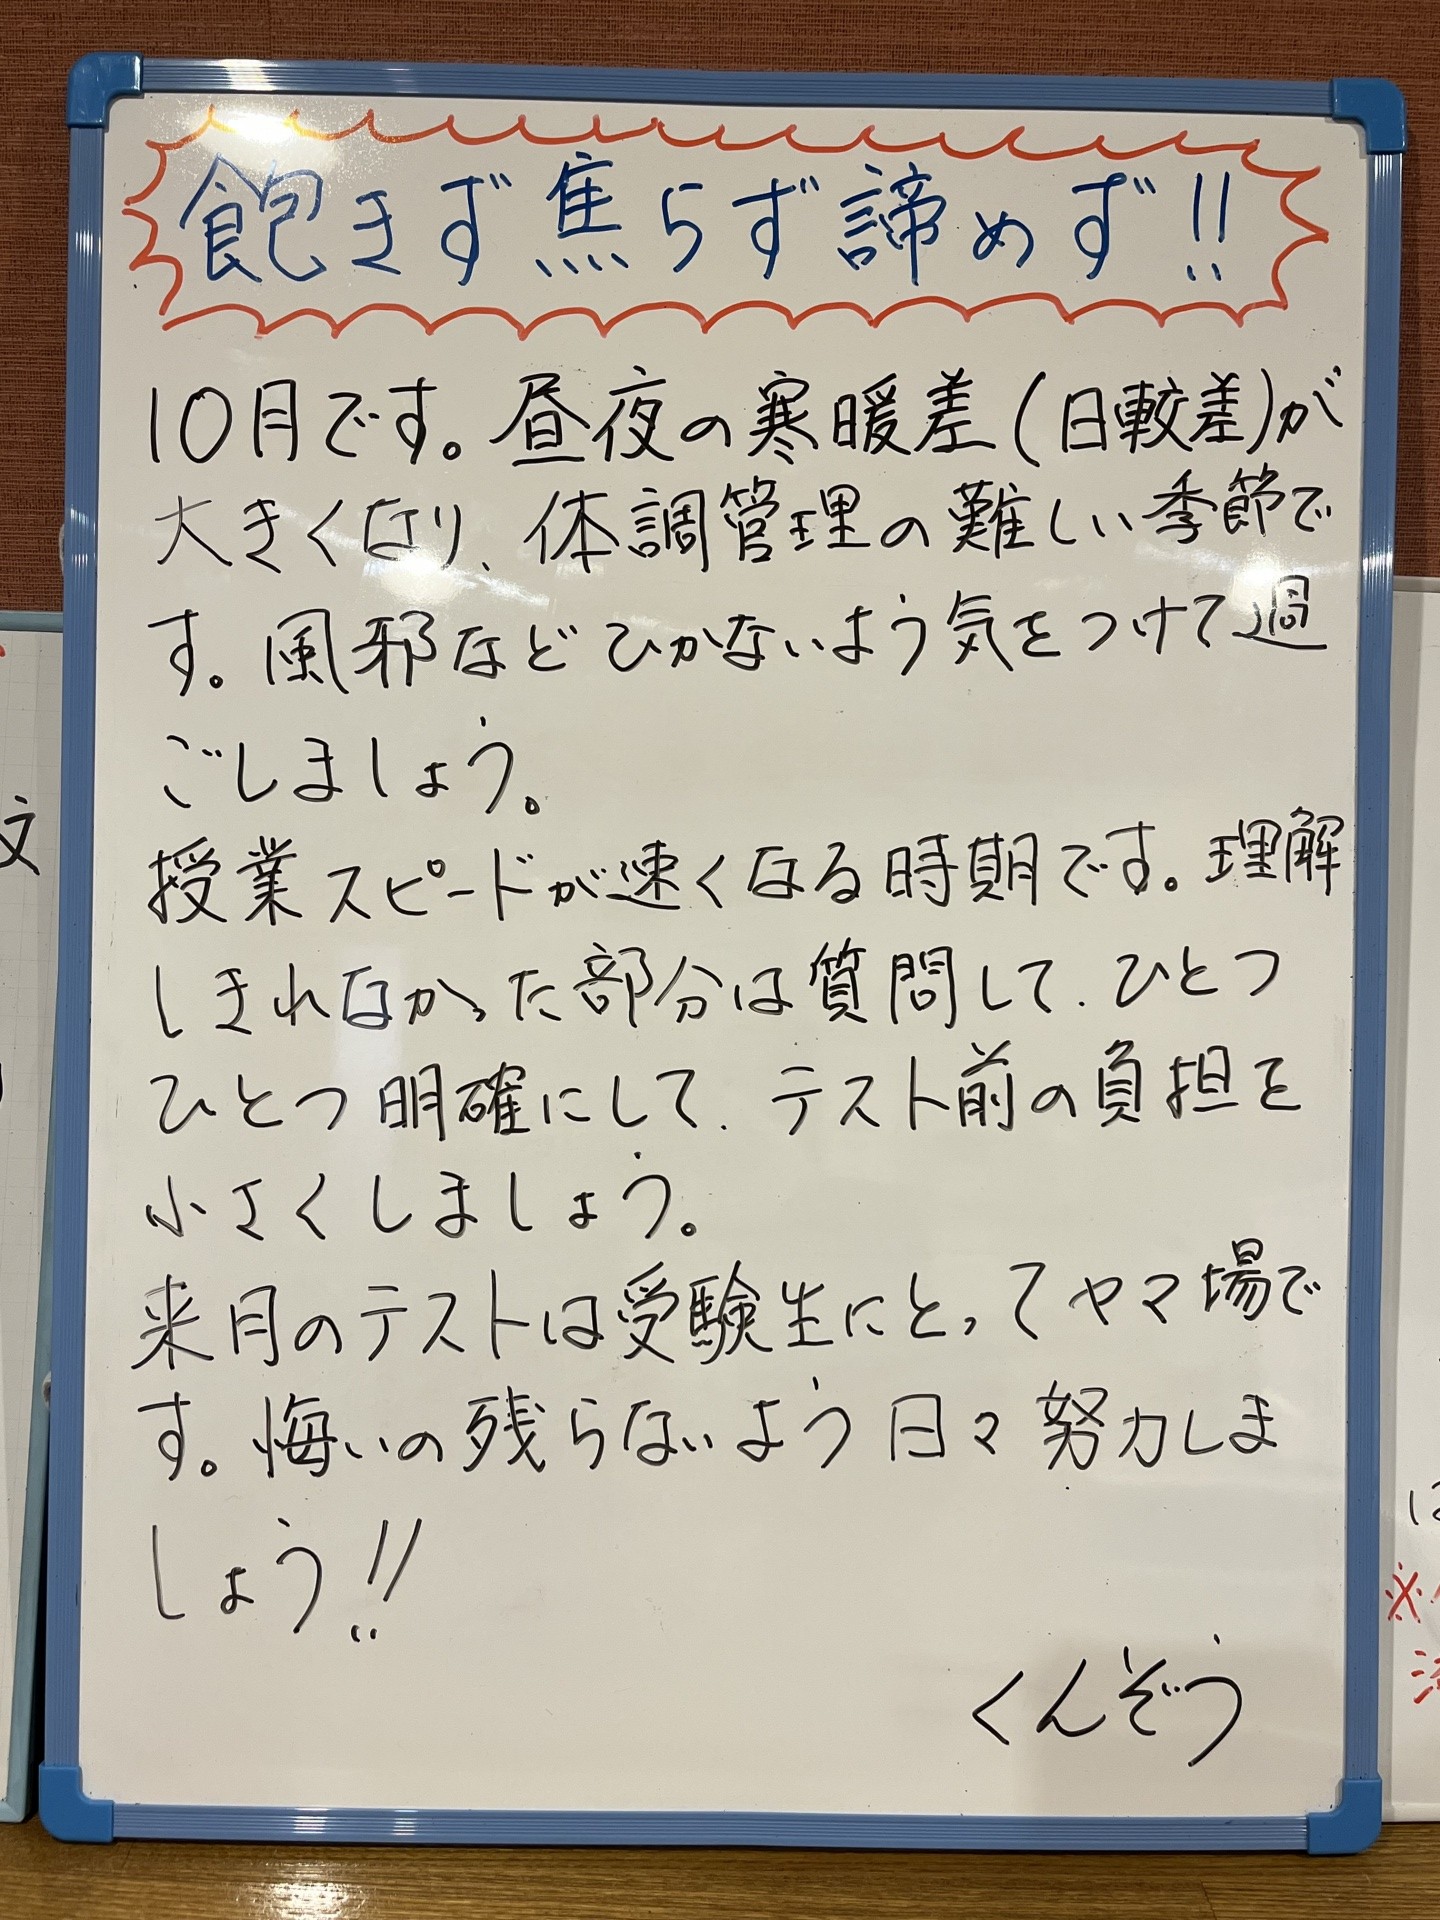 飽きず焦らず諦めず!!
10月です。昼夜の寒暖差(日較差)が
大きくなり、体調管理の難しい季節で
す。風邪などひかないよう気をつけて過
ごしましょう。
授業スピードが速くなる時期です。理解
しきれなかった部分は質問して、ひとつ
ひとつ明確にして、テスト前の負担を
小さくしましょう。
来月のテストは受験生にとってヤマ場で
す。悔いの残らないよう日々努力しま
しょう!!
くんぞう
文
は
※